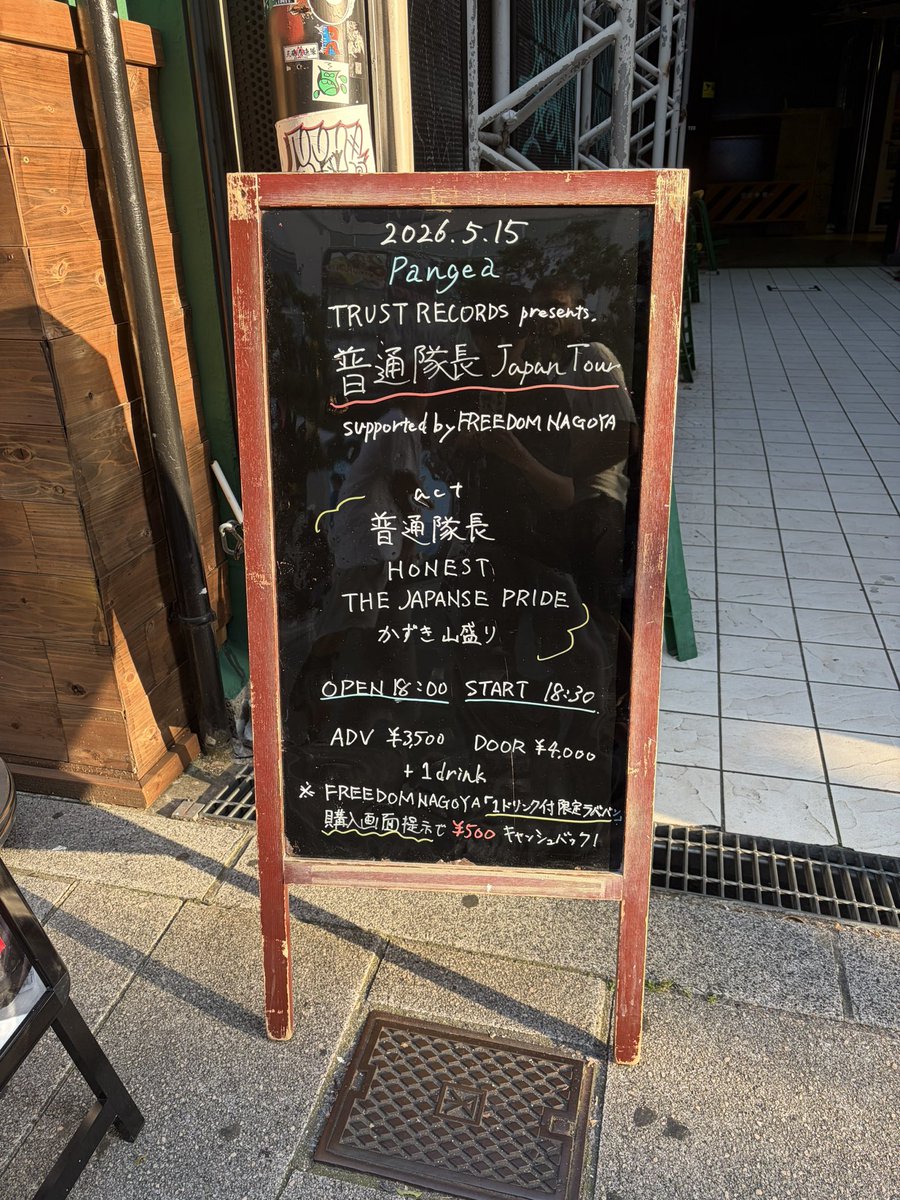 2026.5.15
Pangea
TRUST RECORDS presents.
普通隊長 Japan Tour
supported by FREEDOM NAGOYA
act
普通隊長
HONEST
THE JAPANSE PRIDE
かずき山盛り
OPEN 18:00 START 18:30
ADV ¥3,500 DOOR ¥4,000
+ 1drink
※ FREEDOM NAGOYA「1ドリンク付限定ラババン」
購入画面提示で ¥500 キャッシュバック!